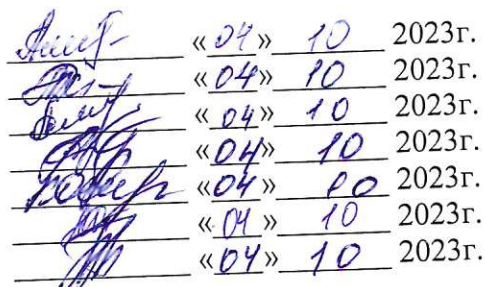 «04» 10 2023г.
«04» 10 2023г.
«04» 10 2023г.
«04» 10 2023г.
«04» 10 2023г.
«04» 10 2023г.
«04» 10 2023г.